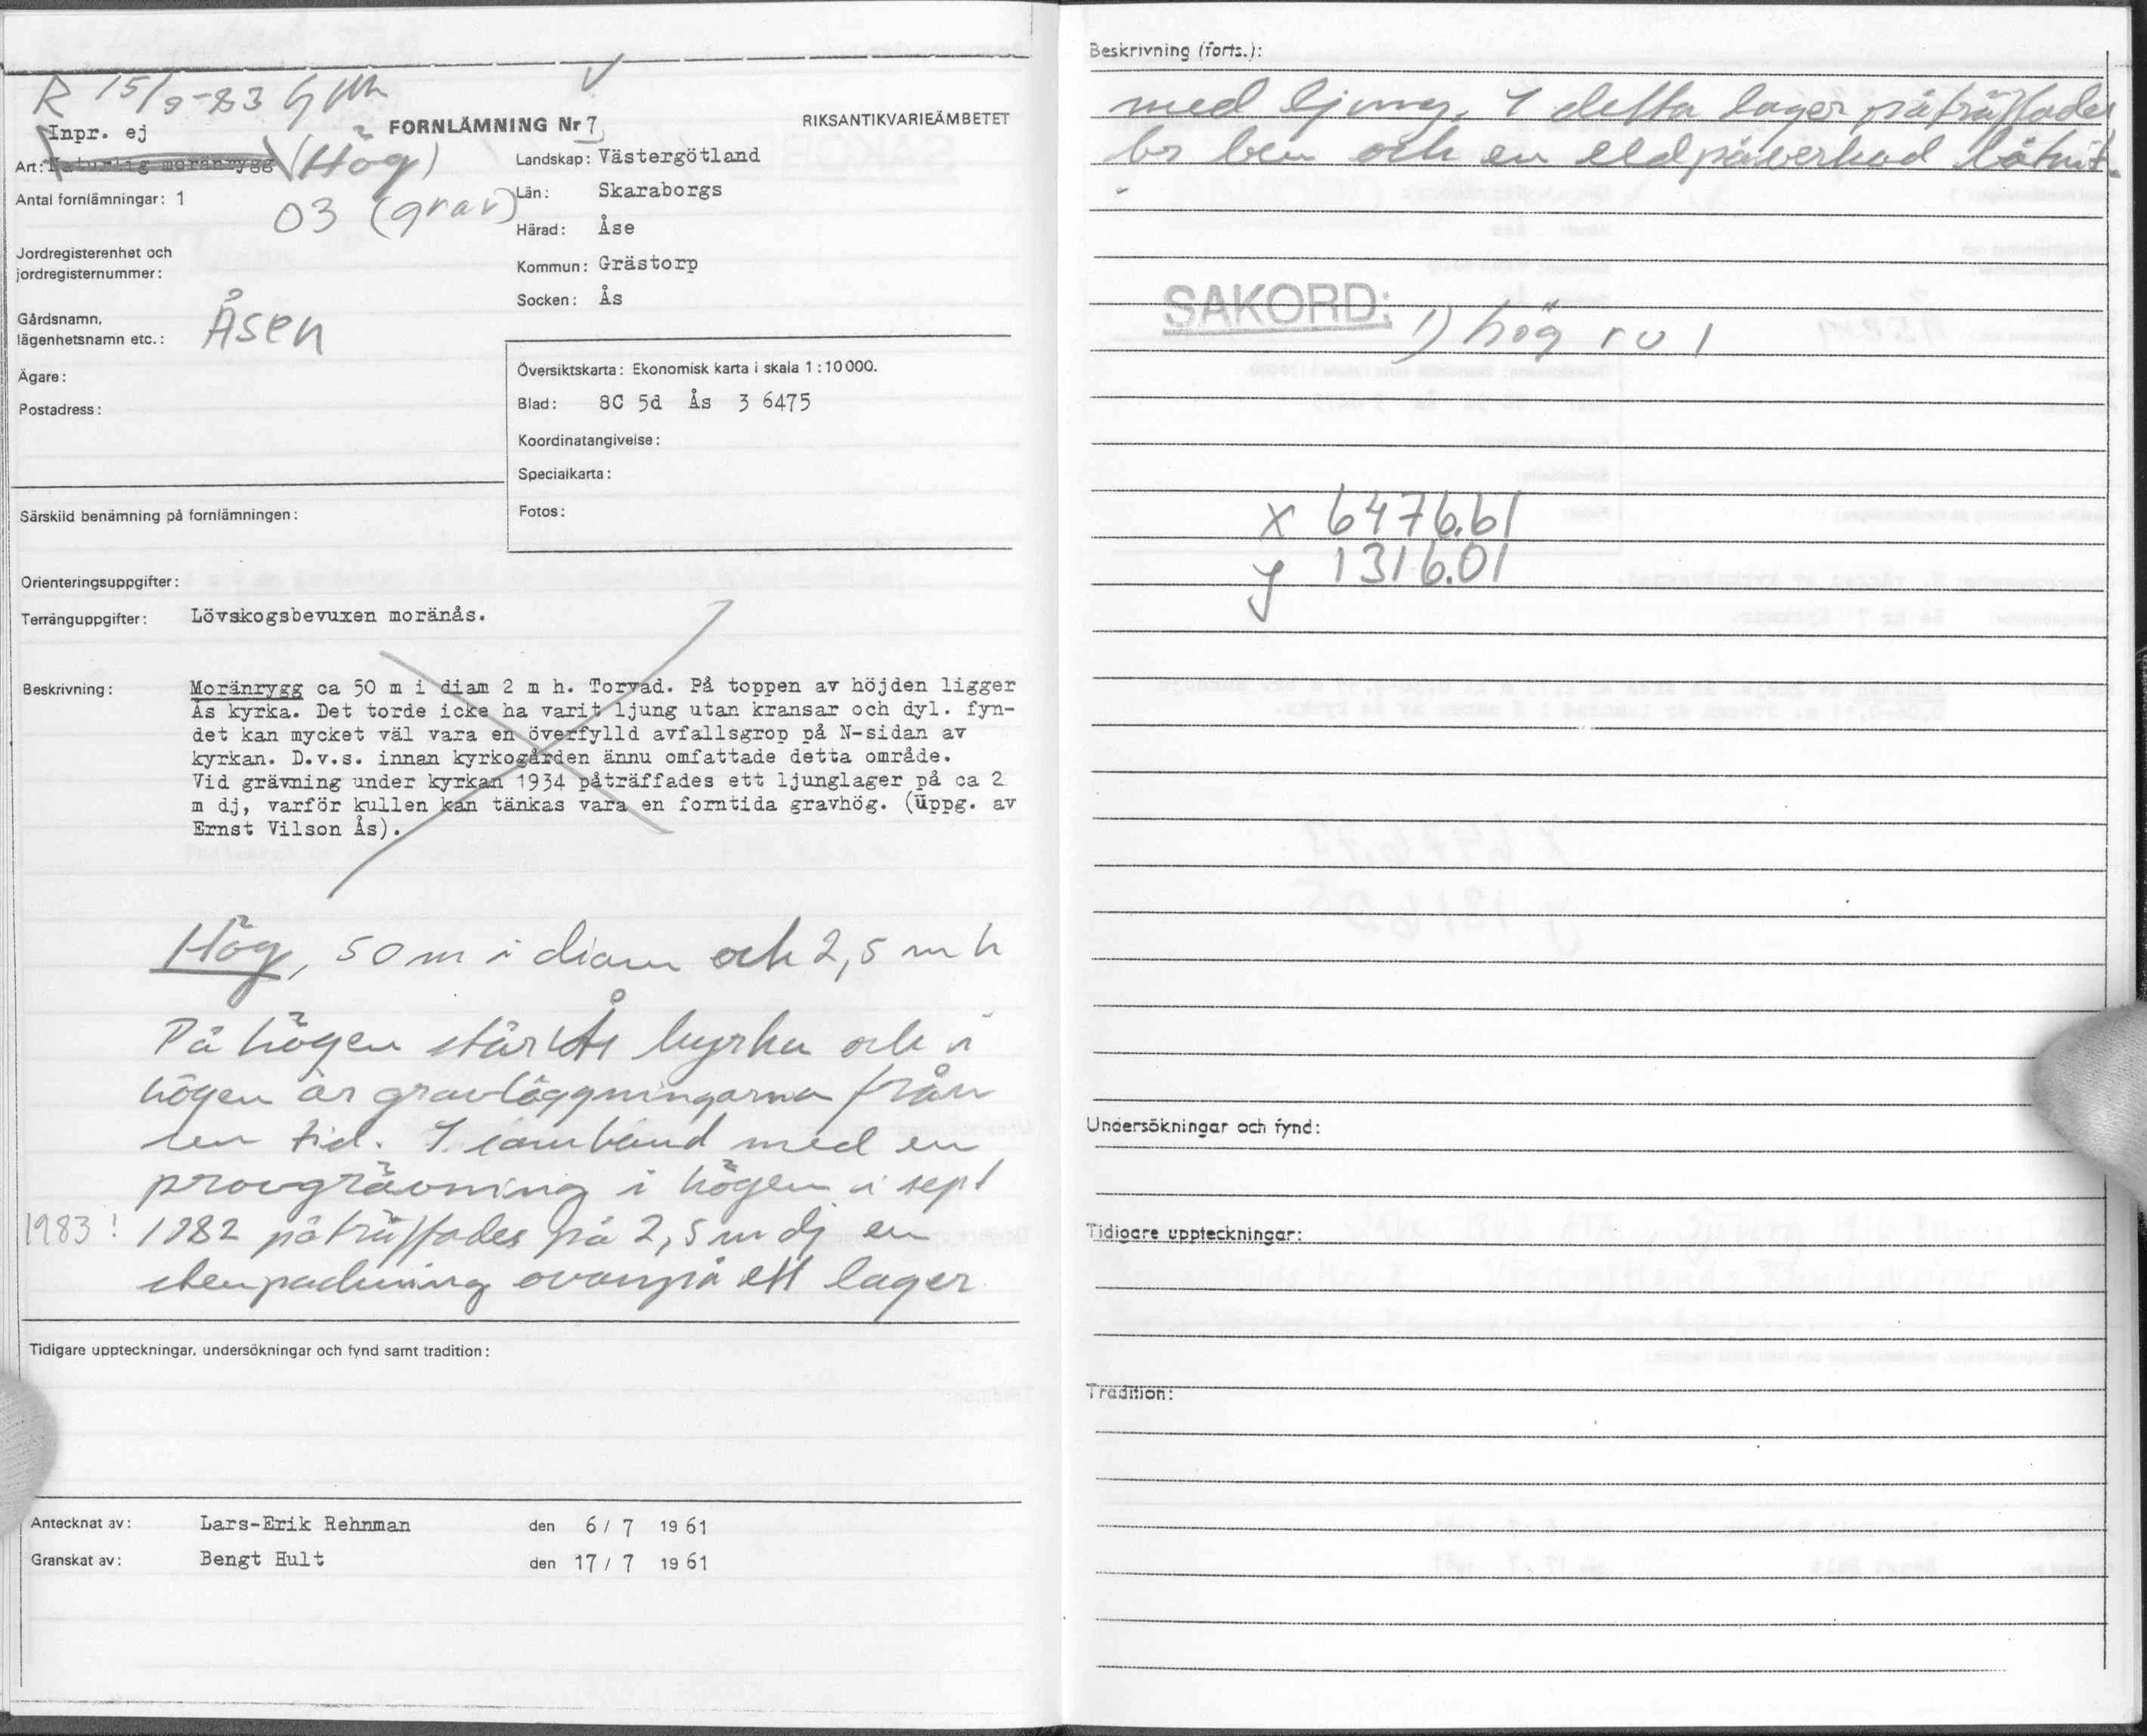 R 15/9-83
Inpr. ej
FORNLÄMNING Nr 7
RIKSANTIKVARIEÄMBETET
Art: Naturlig moränrygg (Hög)
Antal fornlämningar: 1
03 (grav)
Landskap: Västergötland
Län: Skaraborgs
Härad: Åse
Kommun: Grästorp
Socken: Ås
Jordregisterenhet och
jordregisternummer:
Gårdsnamn,
lägenhetsnamn etc.: Åsen
Ägare:
Postadress:
Översiktskarta: Ekonomisk karta i skala 1:10000.
Blad: 8C 5d Ås 3 6475
Koordinatangivelse:
Specialkarta:
Fotos:
Särskild benämning på fornlämningen:
Orienteringsuppgifter:
Terränguppgifter: Lövskogsbevuxen moränås.
Beskrivning: Moränrygg ca 50 m i diam 2 m h. Torvad. På toppen av höjden ligger
Ås kyrka. Det torde icke ha varit ljung utan kransar och dyl. fyn-
det kan mycket väl vara en överfylld avfallsgrop på N-sidan av
kyrkan. D.v.s. innan kyrkogården ännu omfattade detta område.
Vid grävning under kyrkan 1934 påträffades ett ljunglager på ca 2
m dj, varför kullen kan tänkas vara en forntida gravhög. (Uppg. av
Ernst Vilson Ås).
Hög, 50 m i diam och 2,5 m h
På högen står Ås kyrka och i
högen är gravläggningarna från
sen tid. I samband med en
provgrävning i högen i sept
1983! 1982 påträffades på 2,5 m dj en
stenpackning ovanpå ett lager
Tidigare uppteckningar, undersökningar och fynd samt tradition:
Antecknat av: Lars-Erik Rehnman den 6/7 1961
Granskat av: Bengt Hult den 17/7 1961
Beskrivning (forts.):
med ljung. I detta lager påträffades
br ben och en eldpåverkad
SAKORD:
1) hög rö 1
x 6476.61
y 1316.01
Undersökningar och fynd:
Tidigare uppteckningar:
Tradition: